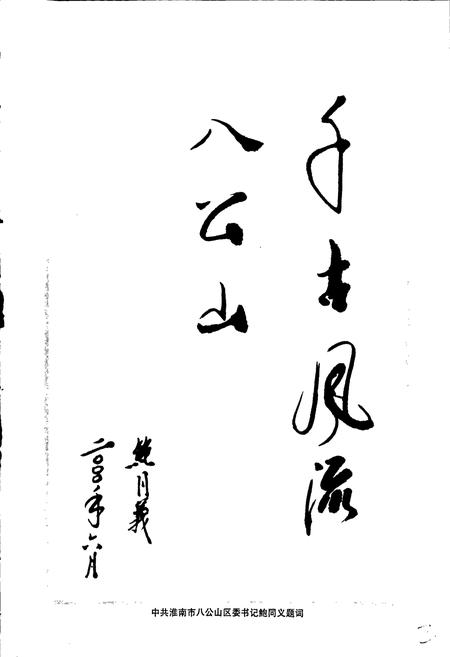 千古风流
八公山
鲍同义
二〇〇〇年六月
中共淮南市八公山区委书记鲍同义题词